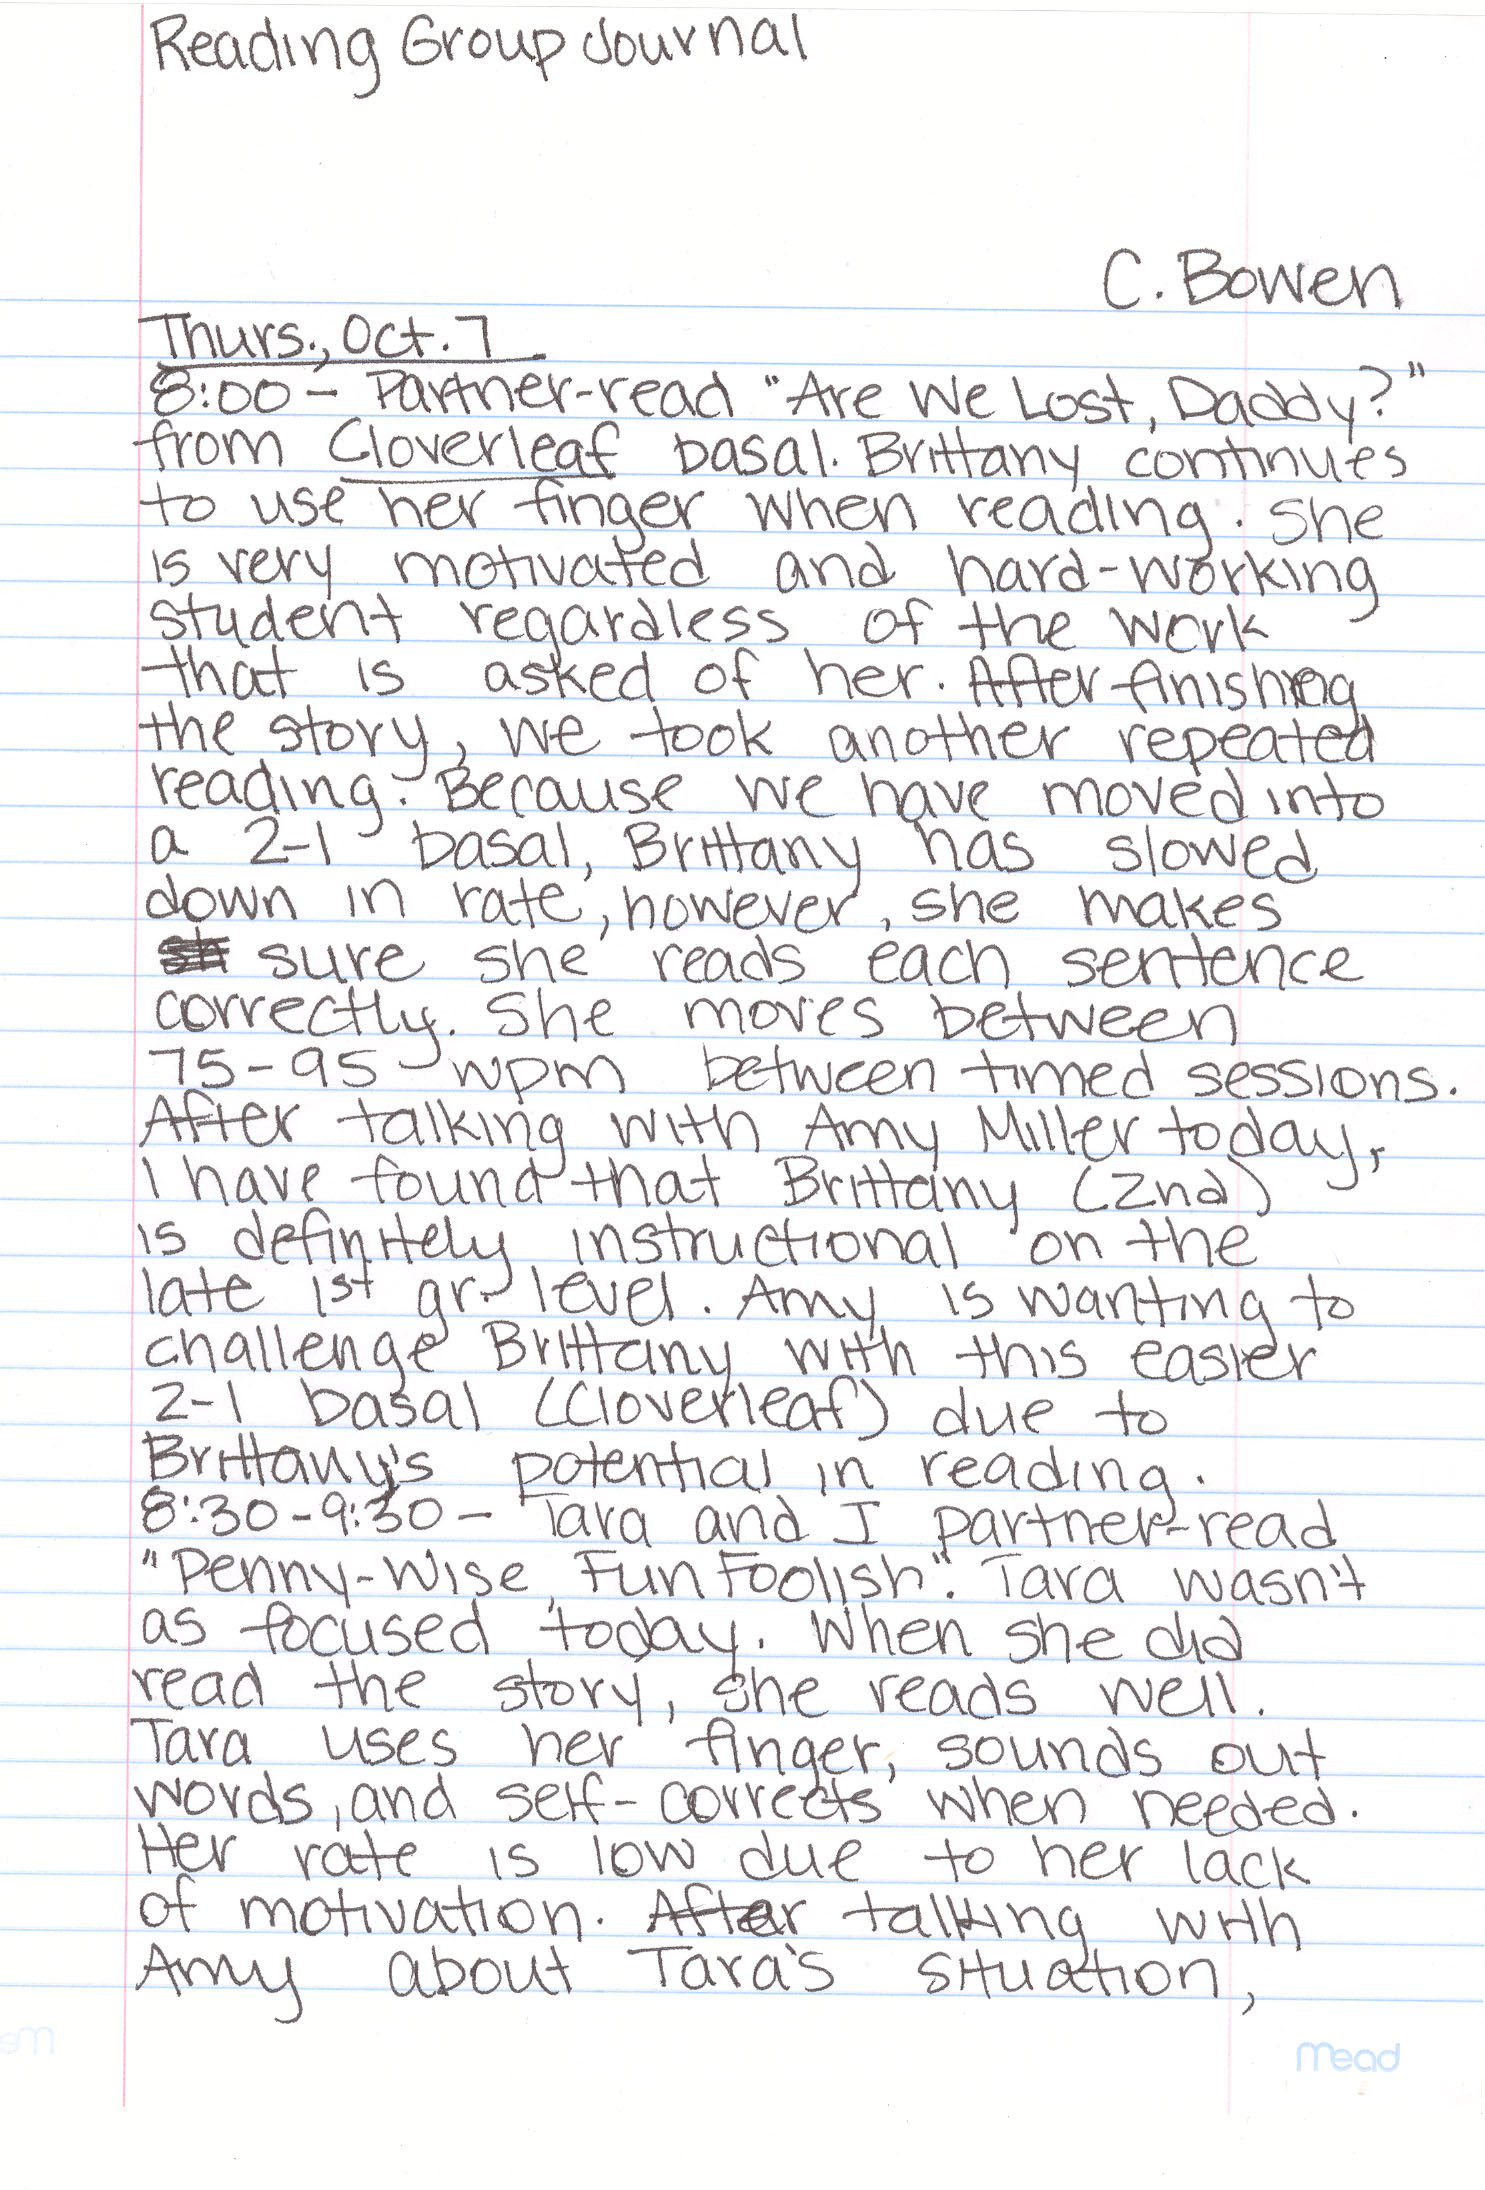 Reading Group Journal
C. Bowen
Thurs., Oct. 7
8:00 - Partner-read "Are We Lost, Daddy?"
from Cloverleaf basal. Brittany continues
to use her finger when reading. She
is very motivated and hard-working
student regardless of the work
that is asked of her. After finishing
the story, we took another repeated
reading. Because we have moved into
a 2-1 basal, Brittany has slowed
down in rate, however, she makes
sh sure she reads each sentence
correctly. She moves between
75-95 wpm between timed sessions.
After talking with Amy Miller today,
I have found that Brittany (2nd)
is definitely instructional on the
late 1st gr. level. Amy is wanting to
challenge Brittany with this easier
2-1 basal (Cloverleaf) due to
Brittany's potential in reading.
8:30-9:30 - Tara and I partner-read
"Penny-Wise, Fun Foolish". Tara wasn't
as focused today. When she did
read the story, she reads well.
Tara uses her finger, sounds out
words, and self-corrects when needed.
Her rate is low due to her lack
of motivation. After talking with
Amy about Tara's situation,
Me
Mead